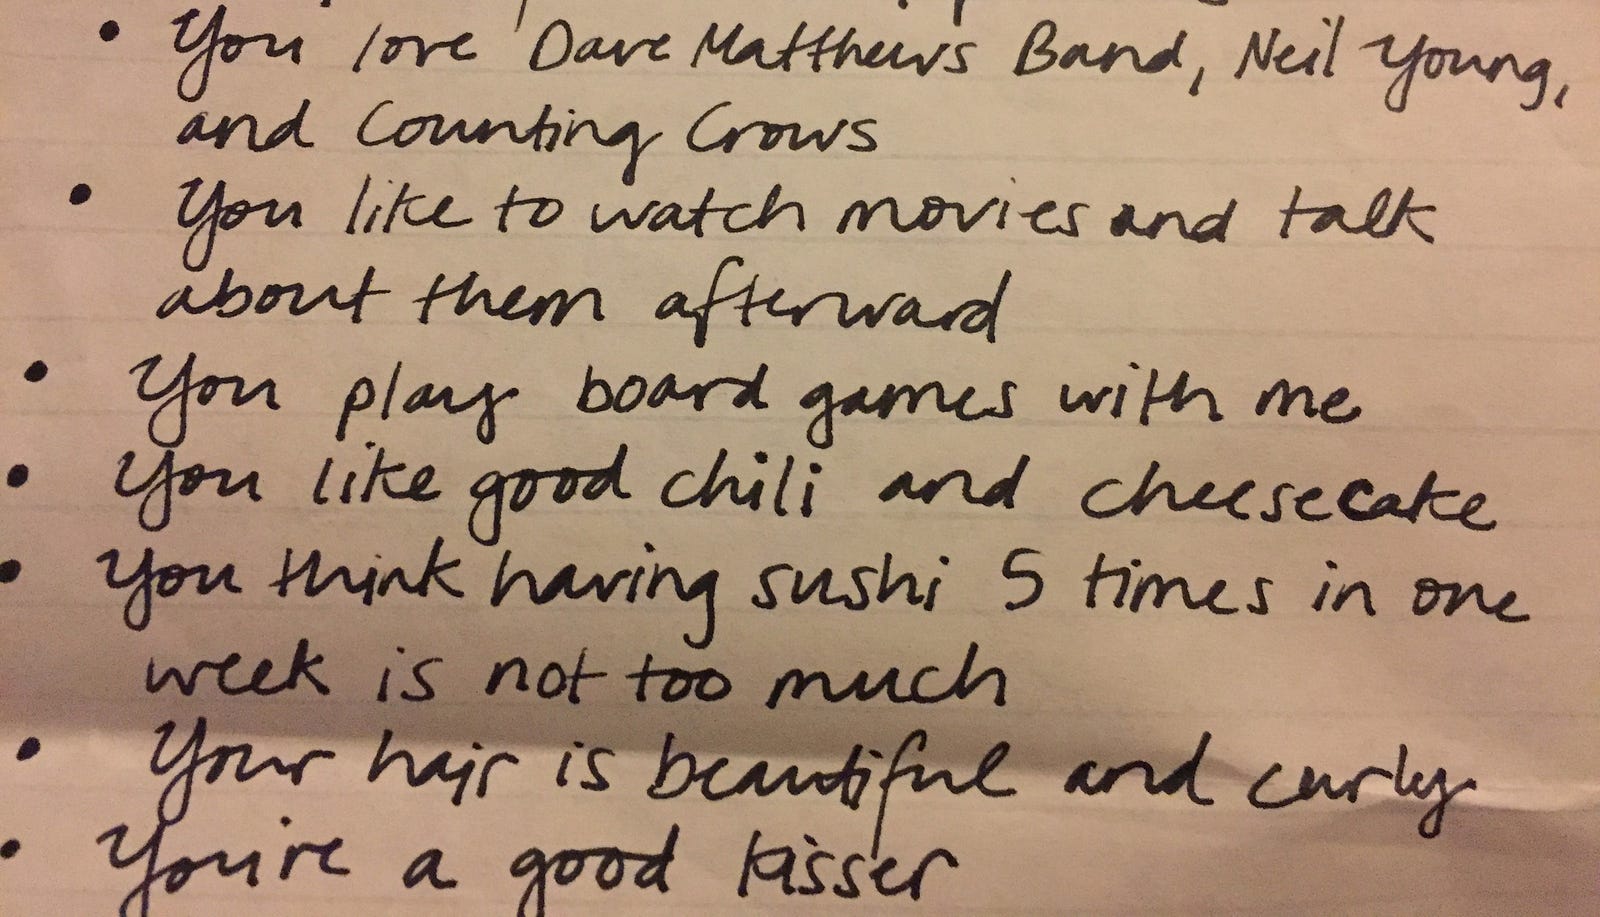 • You love Dave Matthews Band, Neil Young,
and Counting Crows
• You like to watch movies and talk
about them afterward
• You play board games with me
• You like good chili and cheesecake
• You think having sushi 5 times in one
week is not too much
• Your hair is beautiful and curly
• You're a good kisser